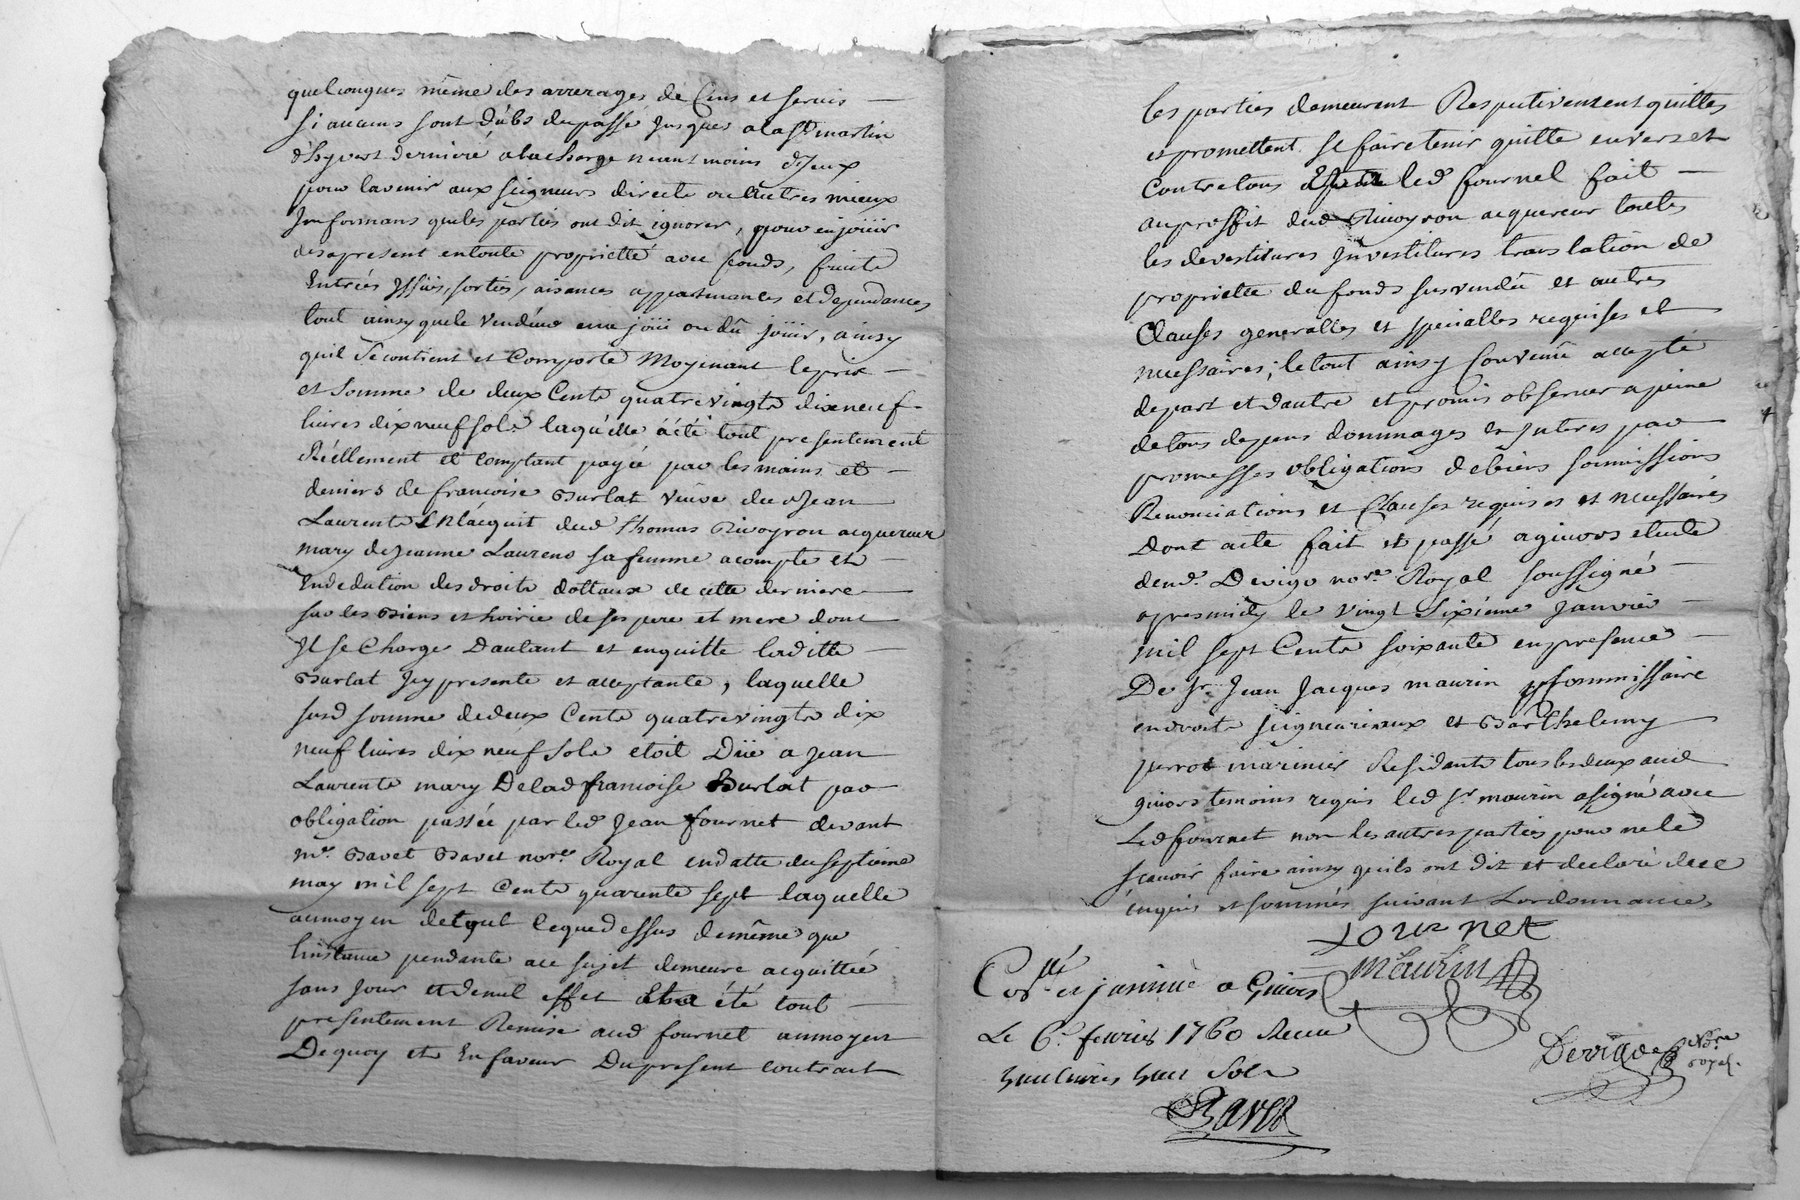 quelconques même des arrerages de Cens et servis
si aucuns sont dûbs du passé jusques a la St martin
d'hyvert dernieré a la charge neent moins d'Jceux
pour lavenir aux seigneurs directe ou autres mieux
Jnformans que les parties ont dit ignorer, pour en joüir
des apresent en toute proprietté avec fonds, fruits
Entrées Jssües, sorties, aisances appartenances et dependances
tout ainsy que le vendeur en a joüi ou dû joüir, ainsy
quil Se contient et Comporte Moyenant le prix
et Somme de deux Cents quatre vingts dix neuf
livres dix neuf sols laquelle a été tout presentement
Réellement et comptant payée par les mains et
deniers de francoise Burlat veüve de Jean
Laurents En l'acquit dud Thomas Rivoyron acquereur
mary de Jeanne Laurens sa femme a compte et
En dedution des droits dottaux de cette derniere
sur les Biens et hoirie de ses pere et mere dont
Jl se Charge Dautant et en quitte laditte
Burlat Jcy presente et acceptante, laquelle
susd somme de deux Cents quatre vingts dix
neuf livres dix neuf Sols etoit Düe a Jean
Laurents mary De lad francoise Burlat par
obligation passée par led Jean fournet devant
mre Bavet Bavet nore Royal en datte du septieme
may mil sept Cents quarente sept laquelle
au moyen de tout ce que dessus de même que
linstance pendante a ce sujet demeure acquittée
sans jour et de nul effet été tout
presentement Remise aud fournet au moyen
De quoy et En faveur Du present contract
les parties demeurent Respectivement quittes
et promettent se faire tenir quitte envers et
Contre tous led fournel fait
au proffit dud Rivoyron acquereur toutes
les devestitures Jnvestitures translation de
propriette du fonds sus vendu et autres
Clauses generalles et specialles requises et
necessaires; le tout ainsy Convenu accepté
de part et dautre et promis observer a peine
de tous depens dommages et Jnterets par
promesses obligations de biens soumissions
Renonciations et Clauses requises et necessaires
Dont acte fait et passé a givors etude
dend. Devigo nore Royal soussigné
apres midy le vingt Sixieme Janvier
mil sept Cents soixante en presence
De Sr Jean Jacques maurin Commissaire
en droits seigneuriaux et Barthelemy
perrot marinier Residants tous les deux aud
givors temoins requis led Sr maurin a signé avec
Led fournet non les autres parties pour ne le
scavoir faire ainsy quils ont dit et declaré de ce
enquis et sommés suivant Lordonnance
fournet
Maurin
Devigo Nore royal.
Collé et jnsinué a Givors
Le 6e fevrier 1760 Recu
huit livres huit Sols
Bavet